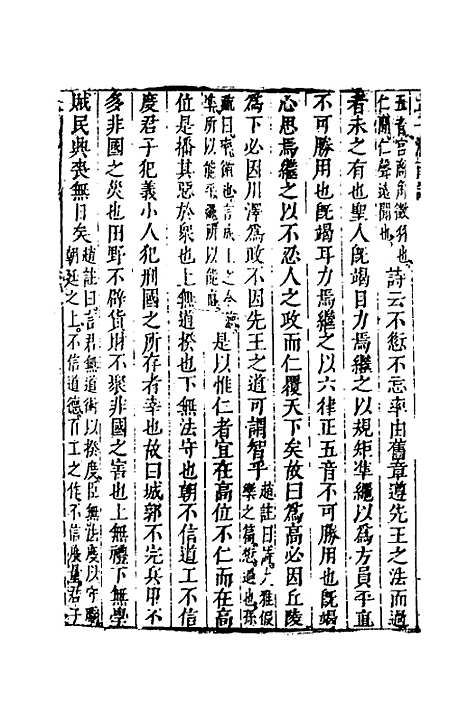 五音宮商角徵羽也
仁聞仁聲遠聞也
詩云不愆不忘率由舊章遵先王之法而過
者未之有也聖人既竭目力焉繼之以規矩準繩以為方員平直
不可勝用也既竭耳力焉繼之以六律正五音不可勝用也既竭
心思焉繼之以不忍人之政而仁覆天下矣故曰為高必因丘陵
為下必因川澤為政不因先王之道可謂智乎
趙註曰詩大雅假
樂之篇愆過也
是以惟仁者宜在高位不仁而在高
位是播其惡於衆也上無道揆也下無法守也朝不信道工不信
度君子犯義小人犯刑國之所存者幸也故曰城郭不完兵甲不
多非國之災也田野不辟貨財不聚非國之害也上無禮下無學
賊民興喪無日矣
趙註曰言君無道術以揆度臣無法度以守職
朝廷之上不信道德百工之作不信度量君子